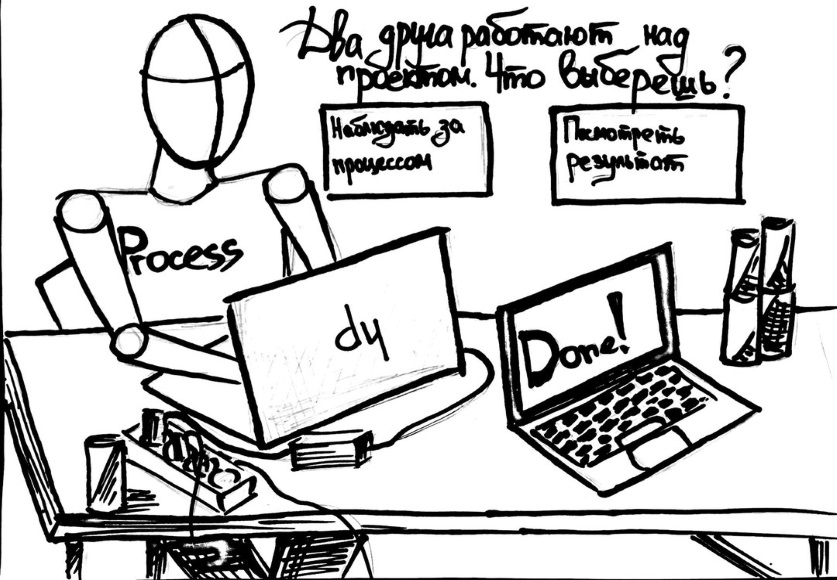 Два друга работают над
проектом. Что выберешь?
Наблюдать за
процессом
Посмотреть
результат
Process
dy
Done!